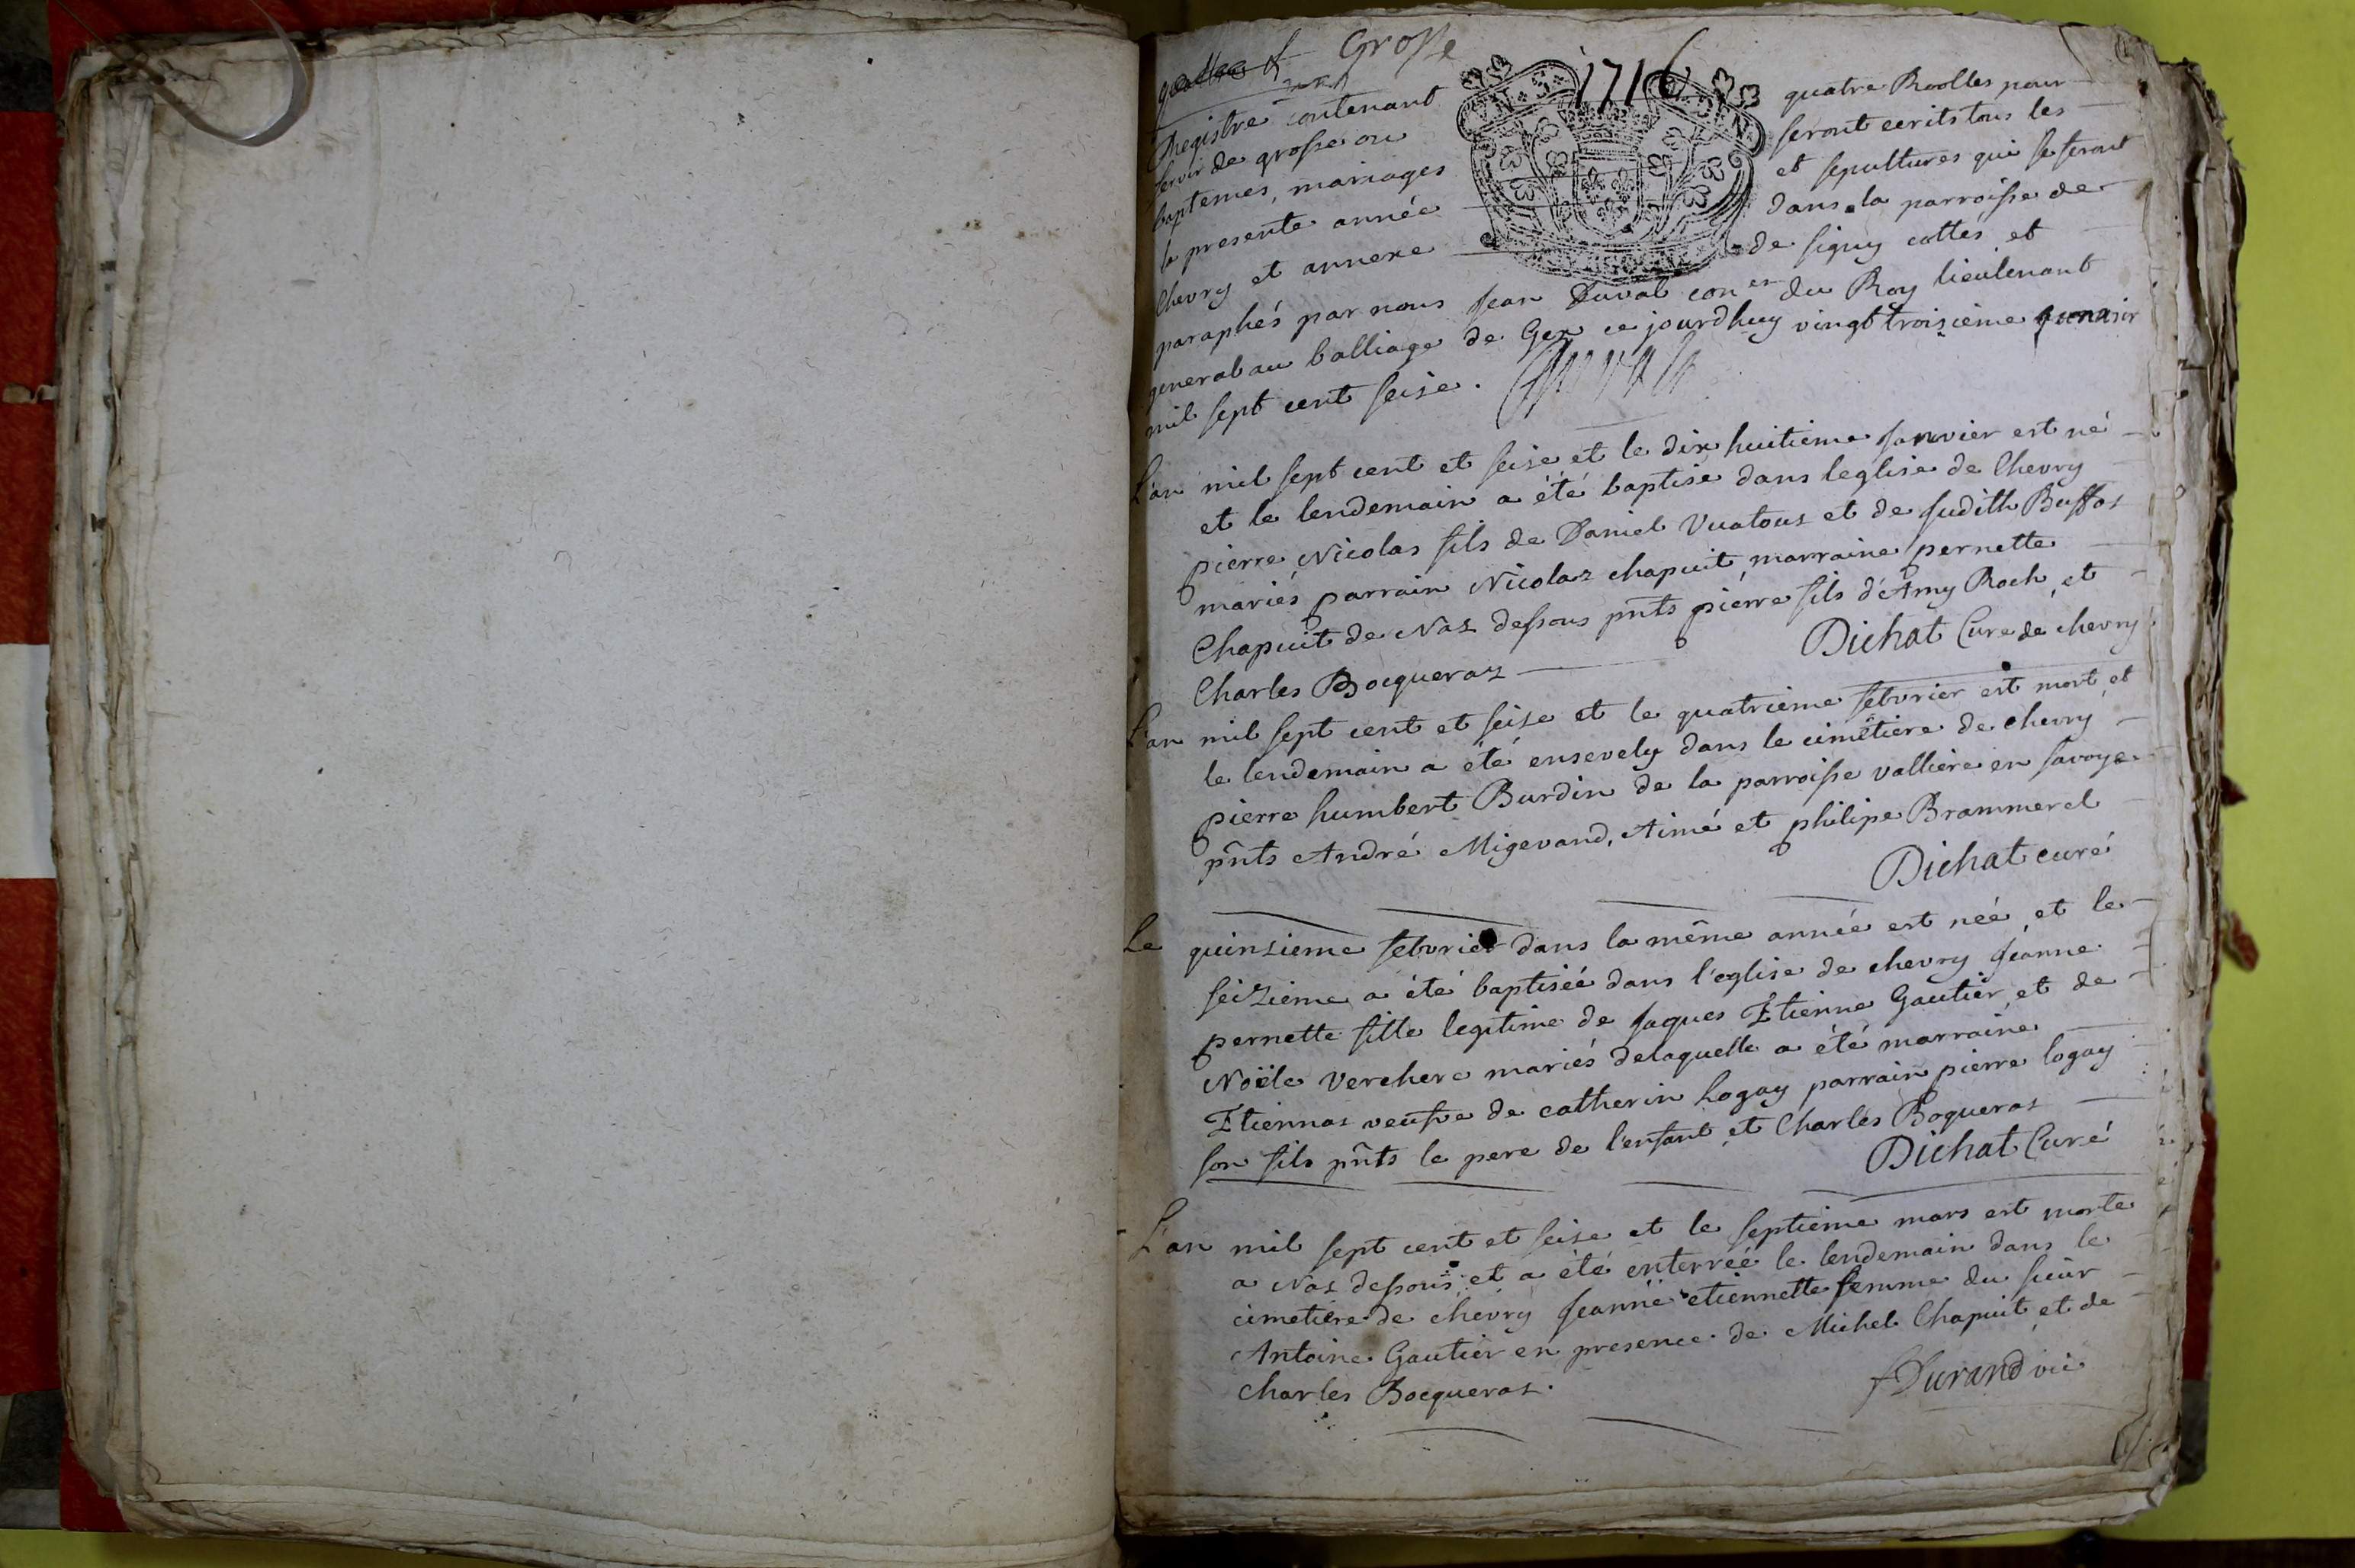 Grosse
1716
Registre contenant quatre Roolles pour
servir de grosse ou seront ecrits tous les
baptemes, mariages et sepultures qui se feront
la presente année dans la parroisse de
Chevry et annexe de signy cottés et
paraphés par nous Jean Duval con.er du Roy lieutenant
general au balliage de Gex ce jourdhuy vingt troisieme
mil sept cent seise. Duval
L'an mil sept cent et seise et le dix huitieme janvier est né
et le lendemain a été baptisé dans leglise de Chevry
pierre Nicolas fils de Daniel Vuatoux et de Judith Buffaz
mariés parrain Nicolas chapuit marraine pernette
Chapuit de Naz dessous pñts pierre fils d'Amy Roch, et
Charles Bocqueraz Dichat Cure de chevry
L'an mil sept cent et seise et le quatrieme febvrier est mort et
le lendemain a été ensevely dans le cimetiere de chevry
pierre humbert Burdin de la parroisse valliere en savoye
pñts André Migevand, Aimé et philipe Brammerel
Dichat curé
Le quinsieme febvrier dans la même année est neé et le
seizieme a été baptiseé dans l'eglise de chevry Jeanne
pernette fille legitime de Jaques Etienne Gautier et de
Noële Verchere mariés delaquelle a été marraine
Etiennaz veufve de catherin Logay parrain pierre logay
son fils pñts le pere de l'enfant et Charles Boqueraz
Dichat Curé
L'an mil sept cent et seise et le septieme mars est morte
a Naz dessous et a été enterreé le lendemain dans le
cimetiere de chevry Jeanne etiennette femme du sieur
Antoine Gautier en presence de Michel Chapuit et de
Charles Bocqueraz. Durand vic